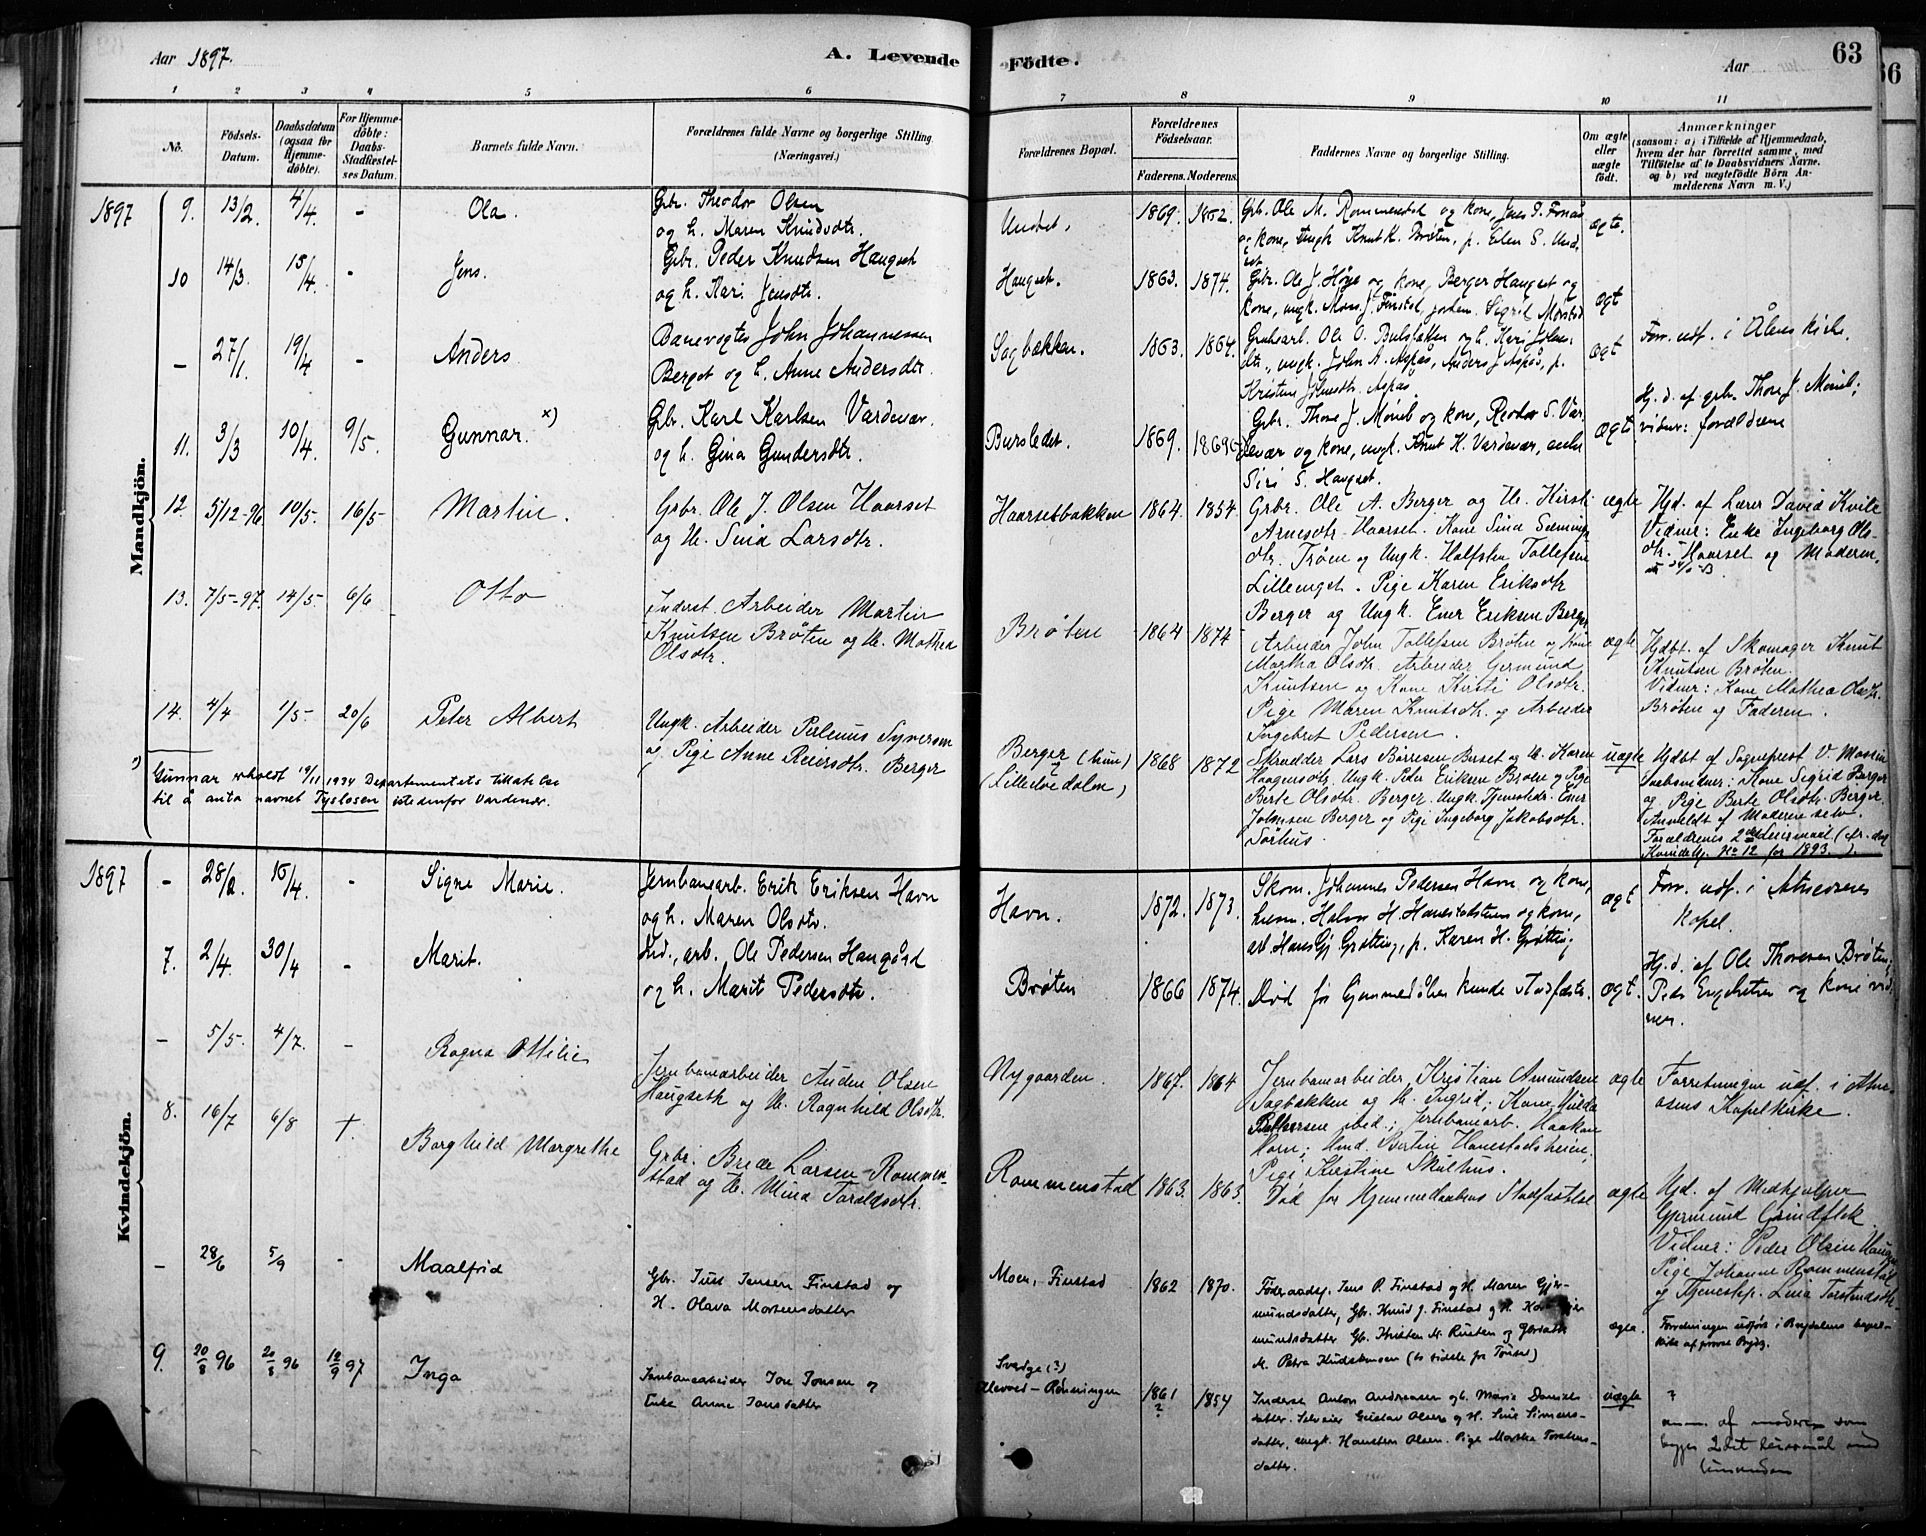 Aar 1897.
A. Levende
Födte.
Aar
63
66
1 2 3 4 5 6
7 8 9 10 11
No.
Födsels-
Datum.
Daabsdatum
(ogsaa for
Hjemme-
döbte).
For Hjemme-
döbte:
Daabs-
Stadfæstel-
ses Datum.
Barnets fulde Navn.
Forældrenes fulde Navne og borgerlige Stilling
(Næringsvei.)
Forældrenes Bopæl.
Forældrenes
Födselsaar.
Faderens. Moderens.
Faddernes Navne og borgerlige Stilling.
Om ægte
eller
uægte
födt.
Anmærkninger
(saasom: a) i Tilfælde af Hjemmedaab,
hvem der har forrettet samme, med
Tilföielse af to Daabsvidners Navne,
og b) ved uægtefödte Börn An-
melderens Navn m. V.)
Mandkjön.
1897
9. 13/2 4/4 - Ola.
Gbr. Theodor Olsen
og h. Maren Knudsdtr.
Undset,
1869. 1852.
Gbr. Ole M. Rommenstad og kone, Jens P. Fonaas
og kone, ungk. Knut K. Bröten, p. Elen S. Und-
set
ægte.
10 14/3 15/4 - Jens.
Gbr. Peder Knudsen Haugset
og h. Kari Jensdtr.
Haugset.
1863. 1874.
Gbr. Ole J. Höye og kone, Berger Haugset og
kone, ungk. Mons J. Finstad, jordem. Sigrid Morstad
ægt
- 27/1. 19/4 - Anders
Banevogter John Johannessen
Berget og h. Anne Andersdtr.
Sagbækken.
1863. 1864.
Grubearb. Ole O. Bulstakken og h. Kari Johns-
dtr., ungk. John A. Aspås, Anders J Aspås, p.
Kristine Johnsdtr. Aspås
ægt
Forr. udf. i Ålens kirke.
11. 3/3 10/4. 9/5. Gunnar. x)
Gbr. Karl Karlsen Vardevær
og h. Gina Gundersdtr.
Bursledet.
1869. 1869
Gbr. Thore J. Moneb og kone, Reodor S. Var-
devær og kone, ungk. Knut K. Vardevær, enke
Siri S. Haugset.
ægt
Hj. d. af gbr. Thore J. Moneb;
vidner: forældrene
12. 5/12-96 10/5. 16/5 Martin.
Gbr. Ole J. Olsen Haarset
og H. Sina Larsdtr.
Haarsetbakken
1864. 1854.
Gbr. Ole A. Berger og H. Kirsti
Arnesdtr. Haarset. Kone Sina Semings-
dtr. Tröen og Ungk. Halfsten Tollefsen
Lilleenget. Pige Karen Eriksdtr
Berger og Ungk. Ener Eriksen Berger
ægte
Hjd. af Lærer David Kvile
Vidner: Enke Ingeborg Ols-
dtr. Haarset og Moderen.
13. 7/5-97 14/5. 6/6 Otto
Inderst. Arbeider Martin
Knutsen Bröten og H. Mathea
Olsdtr.
Bröten
1864 1874
Arbeider John Tollefsen Bröten og Kone
Martha Olsdtr. Arbeider Germund
Knutsen og Kone Kirsti Olsdtr.
Pige Maren Knutsdtr. og Arbeider
Ingebret Pedersen.
ægte
Hjdbt. af Skomager Knut
Knutsen Bröten.
Vidner: Kone Mathea Olsdtr.
Bröten og Faderen.
14. 4/4 1/5- 20/6 Peter Albert
Ungk. Arbeider Perlenius Syversen
og Pige Anne Reiersdtr. Berger
Berger (hun)
(Lilleelvedalen)
1868 1872
Skrædder Lars Börresen Buset og H. Karen
Haagensdtr. Ungk. Peder Eriksen Broen og Pige
Berte Olsdtr. Berger. Ungk. Tjenestedr. Ener
Johnsen Berger og Pige Ingeborg Jakobsdtr.
Sörhus.
uægte
Hjdbt. af Sogneprest V.
Daabsvidner: Kone Sigrid Berger
og Pige Berte Olsdtr. Berger.
Anmeldt af Moderen selv.
Forældrenes 2det Leiermaal (cfr. dog
Kvindekj. No 12 for 1893.).
x) Gunnar erholdt 19/11 1934 Departementets tillatelse
til å anta navnet Tyslosen istedenfor Vardevær.
1897
Kvindekjön.
- 28/2. 15/4. - Signe Marie.
Jernbanearb. Erik Eriksen Havn
og h. Maren Olsdtr.
Havn.
1872. 1873.
Skom. Johannes Pedersen Havn og kone,
Halvor H. Hanestadsteien og kone,
arb. Hans Gj Grötting, p. Karen H. Grötting
ægt
Forr. udf. i Atneosens
kapel.
7. 2/4. 30/4 - Marit.
Ind., arb. Ole Pedersen Haugård
og h. Marit Pedersdtr.
Bröten
1866 1874.
Död för hjemmedåben kunde stadfæstes.
ægt.
Hj. d. af Ole Thoresen Bröten;
Peder Engebretsen og kone vid-
ner.
- 5/5- 4/7. - Ragna Ottilie
Jernbanearbeider Auden Olsen
Haugseth og H. Ragnhild Olsdtr.
Nygaarden.
1867. 1864
Jernbanearbeider Kristian Amundsen
Sagbakken og H. Ingrid; Kone Hulda
Pettersen ibid.; Jernbanearb. Haakon
Horn; Ind. Bertin Hanestadsheien,
Pige Kristine Skulhus.
ægte
Forretningen udf. i Atne-
osens Kapelkirke.
8. 16/7 6/8 †. Borghild Margrethe
Gbr. Brede Larsen Rommen-
stad og H. Mina Taraldsdtr.
Rommenstad
1863. 1863.
Död för Hjemmedaabens Stadfæstelse
ægte
Hjd. af Medhjælper
Gjermund Grindflek.
Vidner: Peder Olsen Haugen
Pige Johanne Rommenstad
og Tjenestep. Lina Torstensdtr.
- 28/6 5/9 - Maalfrid
Gbr. Just Jensen Finstad og
H. Olava Mortensdatter
Moen, Finstad
1862 1870.
Föderaadsf. Jens P. Finstad og H. Maren Gjer-
mundsdatter, Gbr. Knud J. Finstad og H. Kari Gjer-
mundsdatter Gbr. Kristen M. Rusten og
M. Petra Hudskmoen (to sidste fra Tönset)
ægte.
Forretningen udfört i Brydalens kapel-
kirke af provst
9. 20/8 96 20/8 96 12/9 97 Inga
Jernbanearbeider Jon Jonsen og
Enke Anne Jonsdatter
Sverige (?)
Alevod-Rönningen
1861 ? 1854
Inderst Anton Andreassen og h. Maria Daniels-
datter. Selveier Gustav Olsen og H. Sina Simens-
datter. Ungk. Hansten Olsen. Pige Martha Torstens-
datter.
uægte
?
anm. af moderen som
2det leiermål med